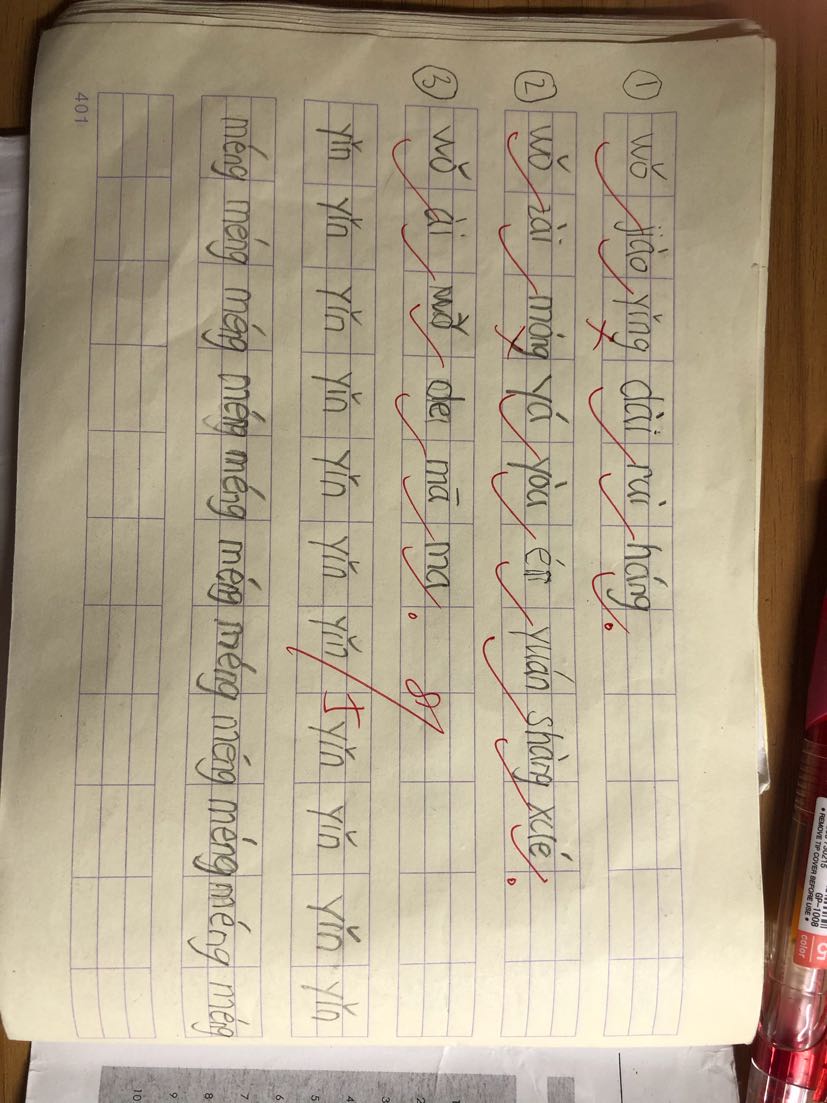 ① wǒ jiào yǐng dài rùi háng.
② wǒ zài máng yá yòu ér yuán shàng xúé.
③ wǒ ài wǒ de mā ma. 87
yǐn yǐn yǐn yǐn yǐn yǐn yǐn yǐn yǐn yǐn yǐn
méng méng méng méng méng méng méng méng méng méng méng méng
401
REMOVE TIP COVER BEFORE USE
GP-1008
color
10 9 8 7 6 5 4 3 2 1